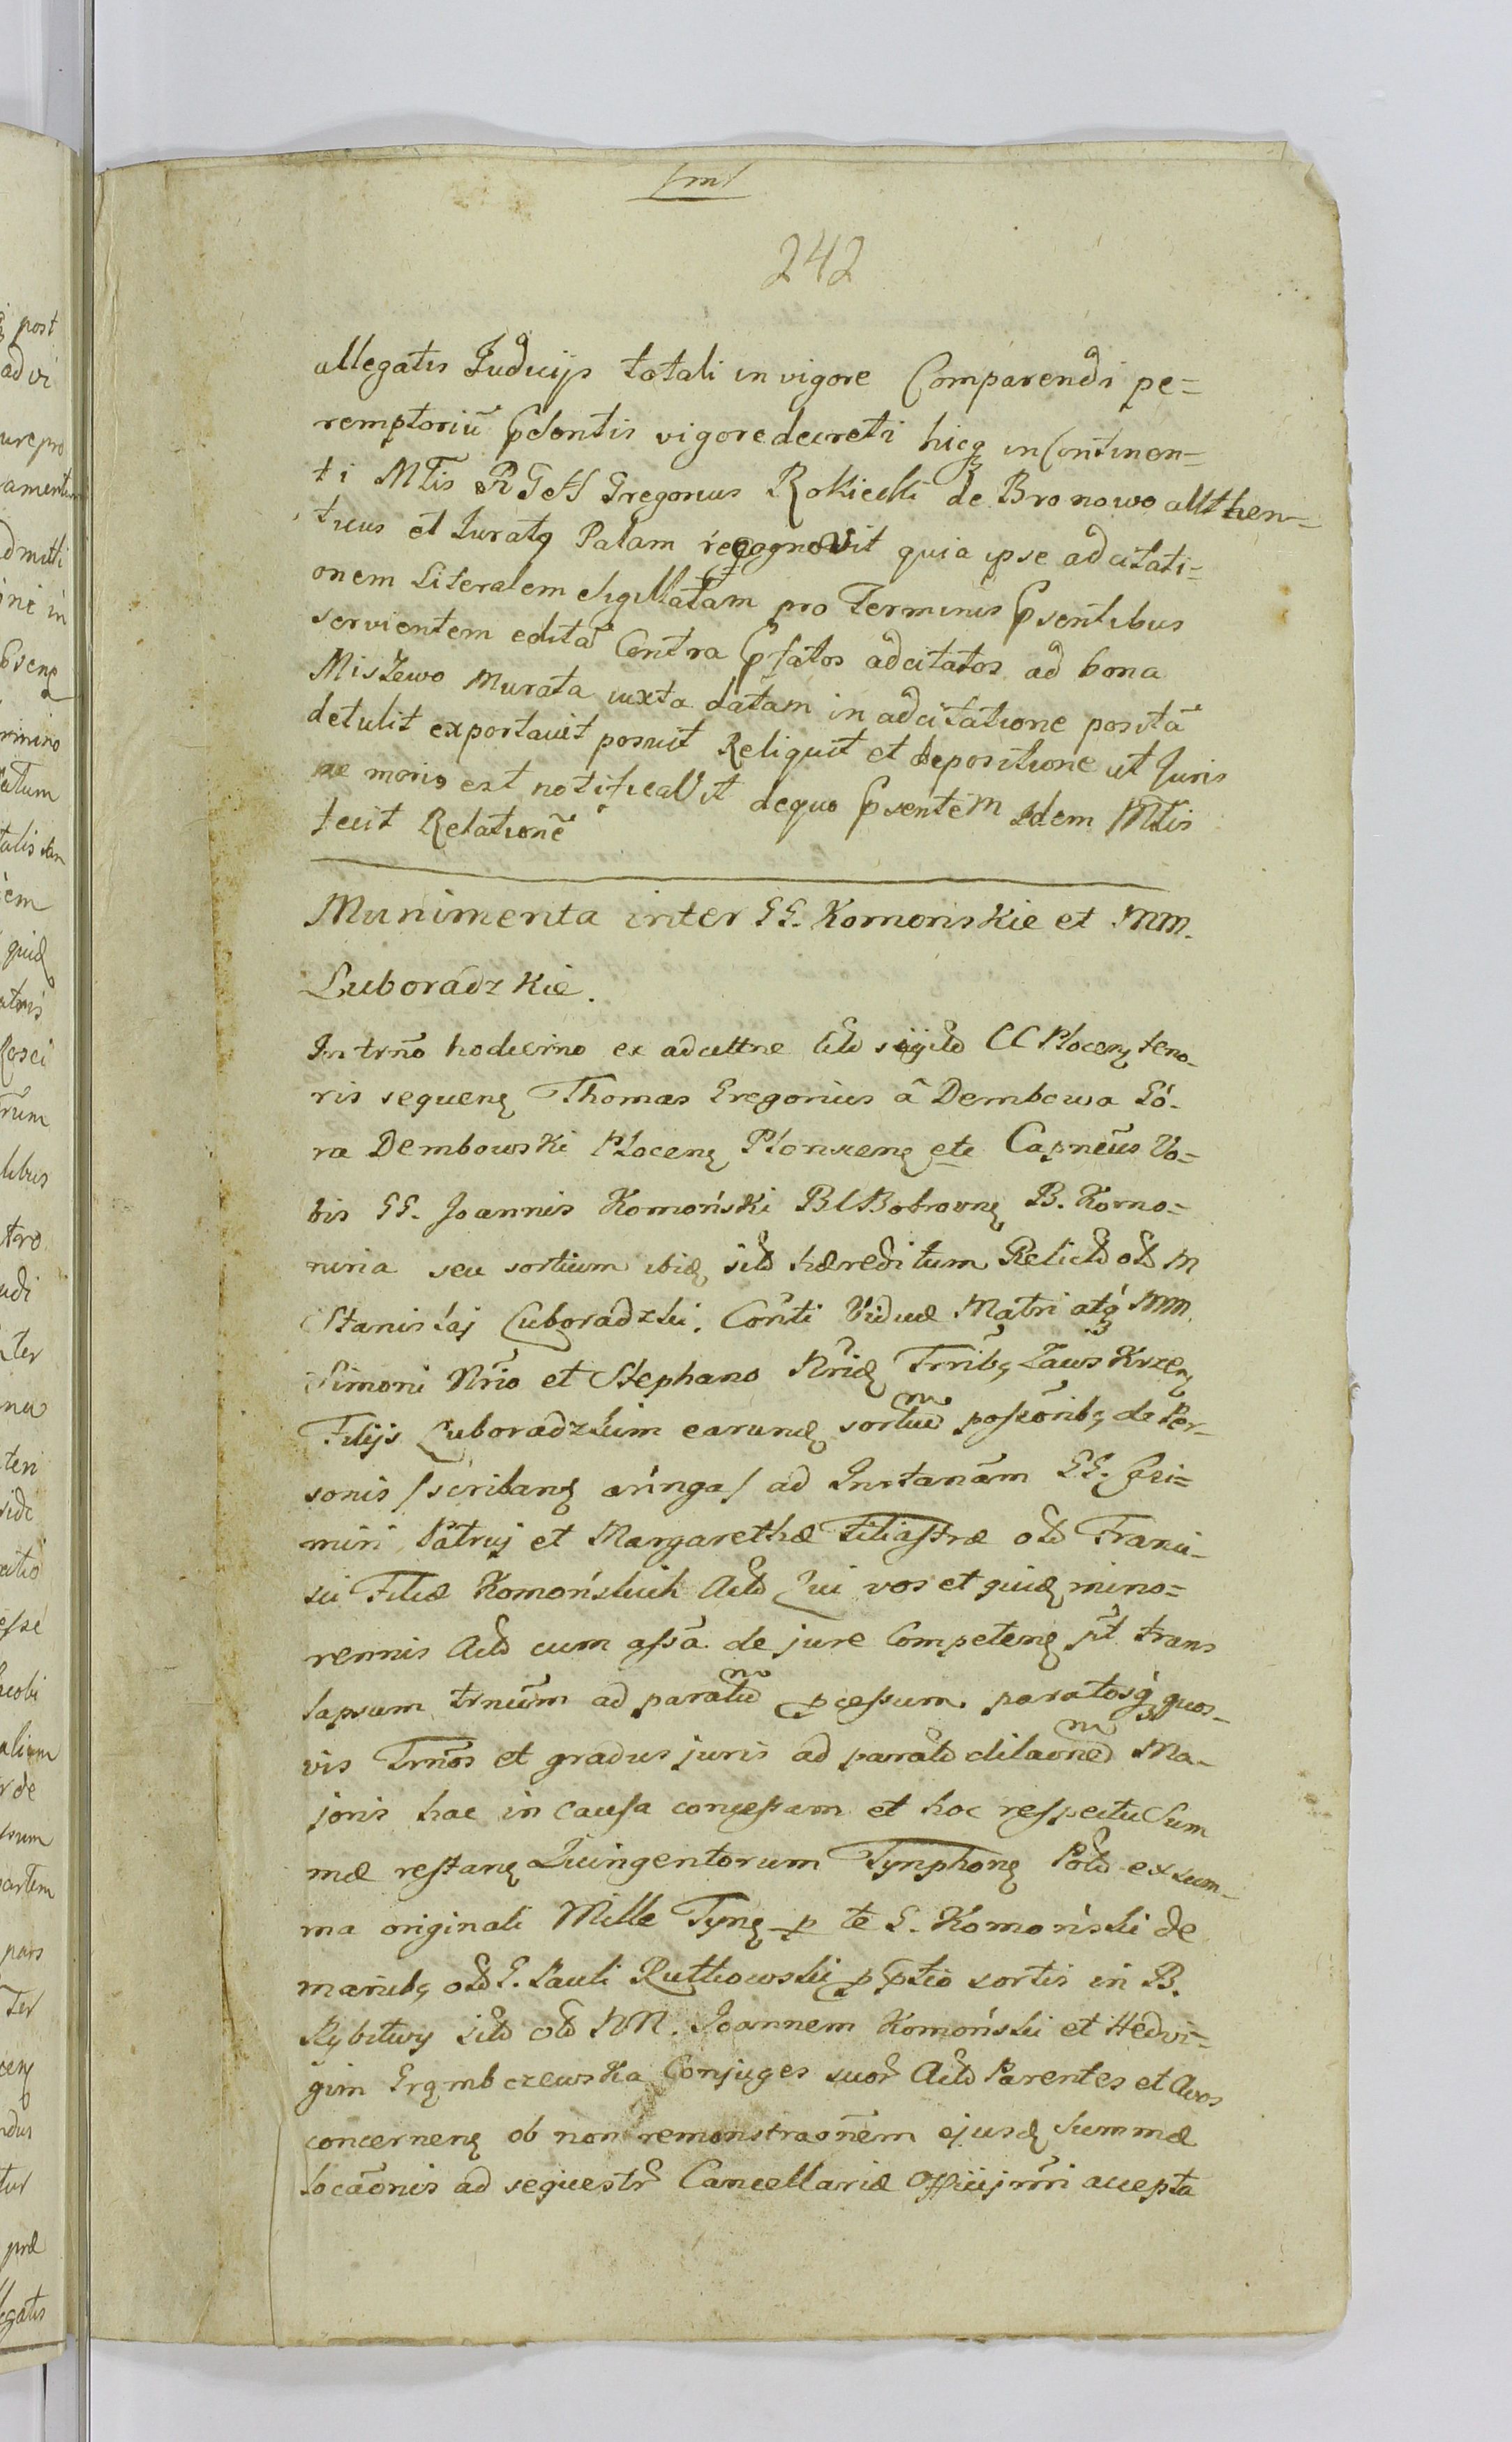 242
allegatis Judicijs totali in vigore Comparendi pe=
remptoriũ Pdsentis vigore decreti hicq; in Continen=
ti Mtis RGH Gregorius Rokicki de Bronowo authen=
ticus et Juratq Palam recognovit quia ipse adcitati=
onem Literalem Sigillatam pro Terminis Psentibus
servientem editã Contra Pfatos adcitatos ad bona
Miszewo Murata iuxta datam in adcitatione positã
detulit exportavit posuit Reliquit et depositione ut Juris
ac moris est notificaVit dequo Psentem Idem Mtis
fecit Relationẽ
Munimenta inter GG. Komonskie et MM.
Luboradzkie.
In trño hodierno ex adcittne litt sigill CC Plocenę teno-
ris sequenę Thomas Gregorius â Dembowa Gó-
ra Dembowski Plocenę Plonscenę etc Capneũs Vo=
bis GG. Joannis Komoński B Bobrovnę B. Komo=
nina seu sortium ibidę sitt hæreditum Relictt ott M
Stanislaj Luboradzki. Conti Viduæ Matri atq; MM.
Simoni Nrio et Stephano Nridę Trribę Zawskrzenę
Filijs Luboradzkim earundę sortiũ possoribę de Per-
sonis /scribanę aringa/ ad Instanãm GG. Casi=
miri Patruj et Margarethæ Filiastræ ott Franci-
sci Filiæ Komońskich Actt Qui vos et quidę mino=
rennis Actt cum assã de jure Competenę pt trans
lapsum trneum ad paratt pcessum. paratosq; quos-
vis Trños et gradus juris ad paratt dilaonẽ Ma-
joris hac in causa concessam et hoc respectu Sum
mæ restanę Quingentorum Tynphonę Polt ex sum-
ma originali Mille Tynę p te G. Komoński de
manibę ott G. Pauli Rutkowski p ptio sortis in B.
Rybitwy sitt ott NN. Joannem Komoński et Hedvi=
gim Grąmbczewska Conjuges suor Actt Parentes et Avos
concernenę ob non remonstraonem ejusdę Summæ
locãonis ad sequestr Cancellariæ Officij nrri accepta